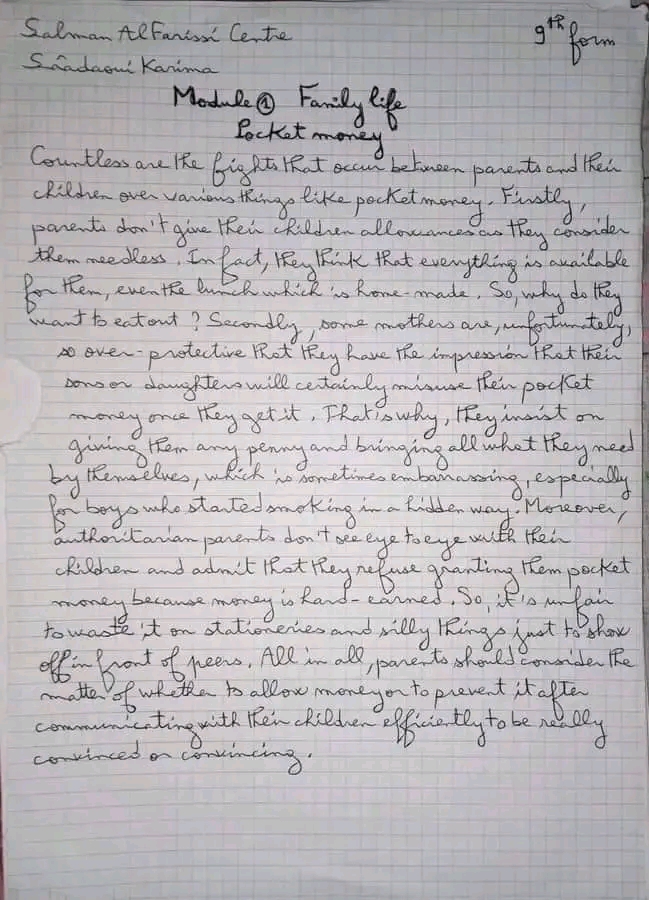 Salman AlFarissi Centre
9th form
Sâadaoui Karima
Module ① Family life
Pocket money
Countless are the fights that occur between parents and their
children over various things like pocket money. Firstly,
parents don't give their children allowances as they consider
them needless. In fact, they think that everything is available
for them, even the lunch which is home-made. So, why do they
want to eat out? Secondly, some mothers are, unfortunately,
so over-protective that they have the impression that their
sons or daughters will certainly misuse their pocket
money once they get it. That's why, they insist on
giving them any penny and bringing all what they need
by themselves, which is sometimes embarrassing, especially
for boys who started smoking in a hidden way. Moreover,
authoritarian parents don't see eye to eye with their
children and admit that they refuse granting them pocket
money because money is hard-earned. So, it's unfair
to waste it on stationeries and silly things just to show
off in front of peers. All in all, parents should consider the
matter of whether to allow money or to prevent it after
communicating with their children efficiently to be really
convinced or convincing.